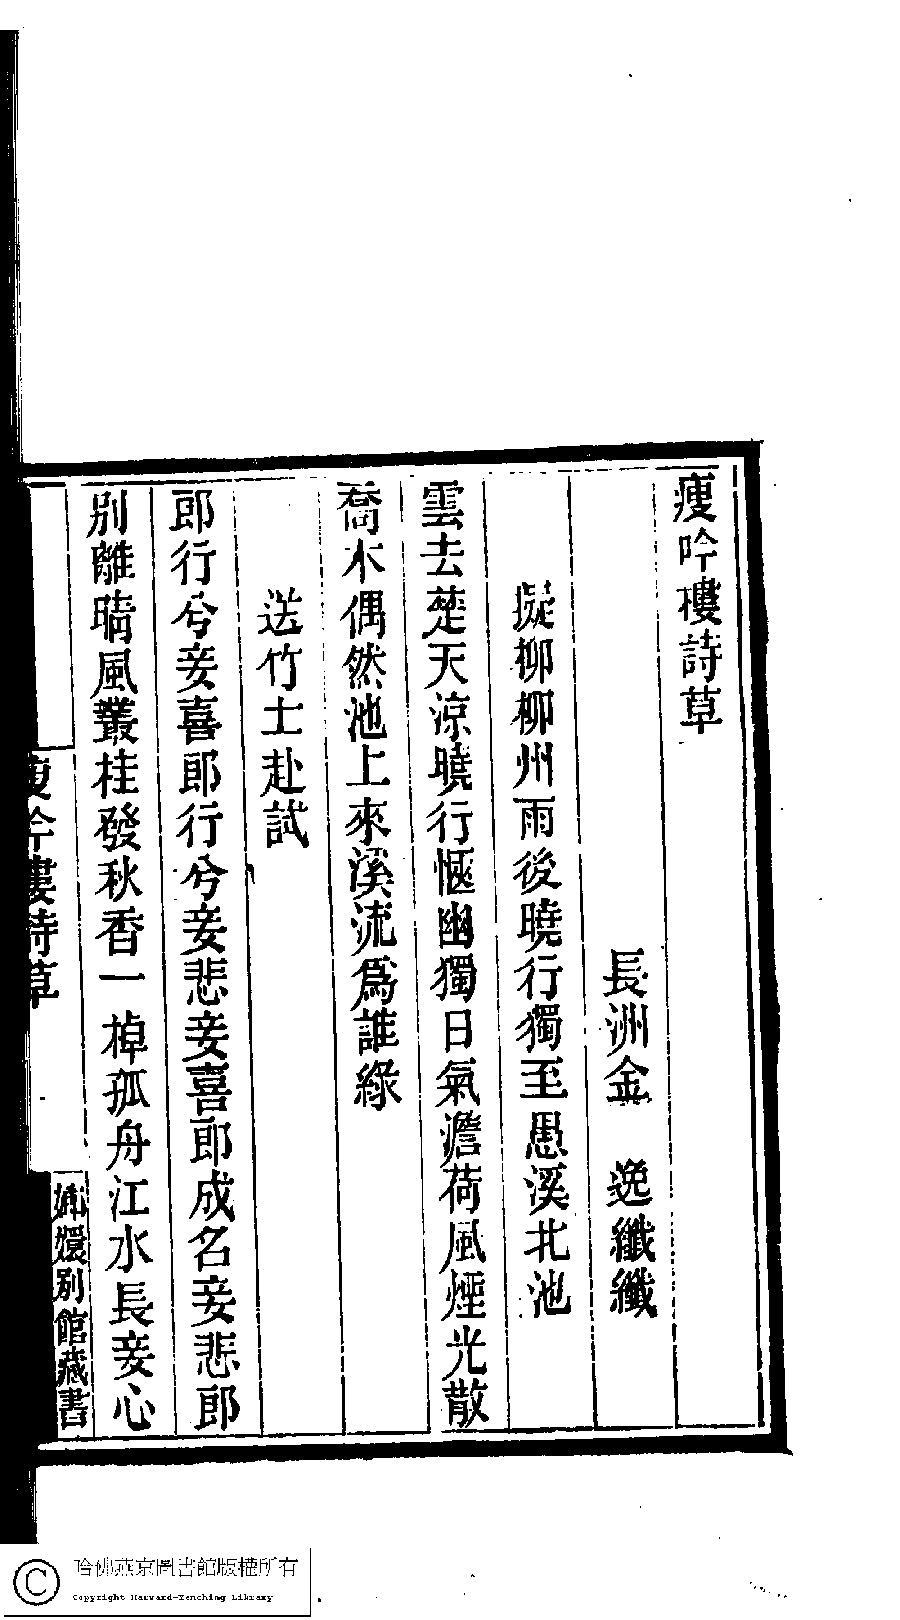 瘦吟樓詩草
長洲金 逸纖纖
擬柳柳州雨後曉行獨至愚溪北池
雲去楚天涼曉行愜幽獨日氣澹荷風煙光散
喬木偶然池上來溪流爲誰綠
送竹士赴試
郎行兮妾喜郎行兮妾悲妾喜郎成名妾悲郎
別離晴風叢桂發秋香一棹孤舟江水長妾心
瘦吟樓詩草
嫏嬛別館藏書
哈佛燕京圖書館版權所有
Copyright Harvard-Yenching Library